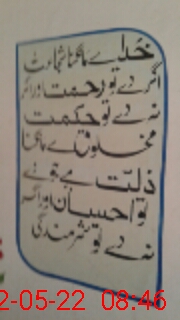 خدا سے مانگنا شجاعت
اگر دے تو رحمت اور اگر
نہ دے تو حکمت
مخلوق سے مانگنا
ذلت ہے جو دے
تو احسان اور اگر
نہ دے تو شرمندگی
2-05-22 08:46